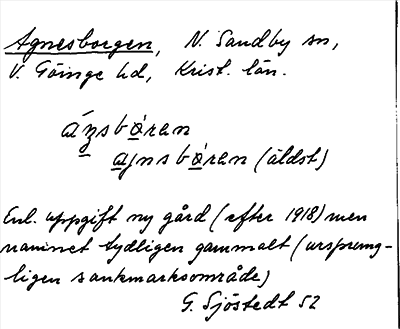 Agnesborgen, N. Sandby sn,
V. Göinge hd, Krist. län.
áŋsbåran
ajnsbåran (äldst)
Enl. uppgift ny gård (efter 1918) men
namnet tydligen gammalt (ursprung-
ligen sankmarksområde)
G. Sjöstedt 52